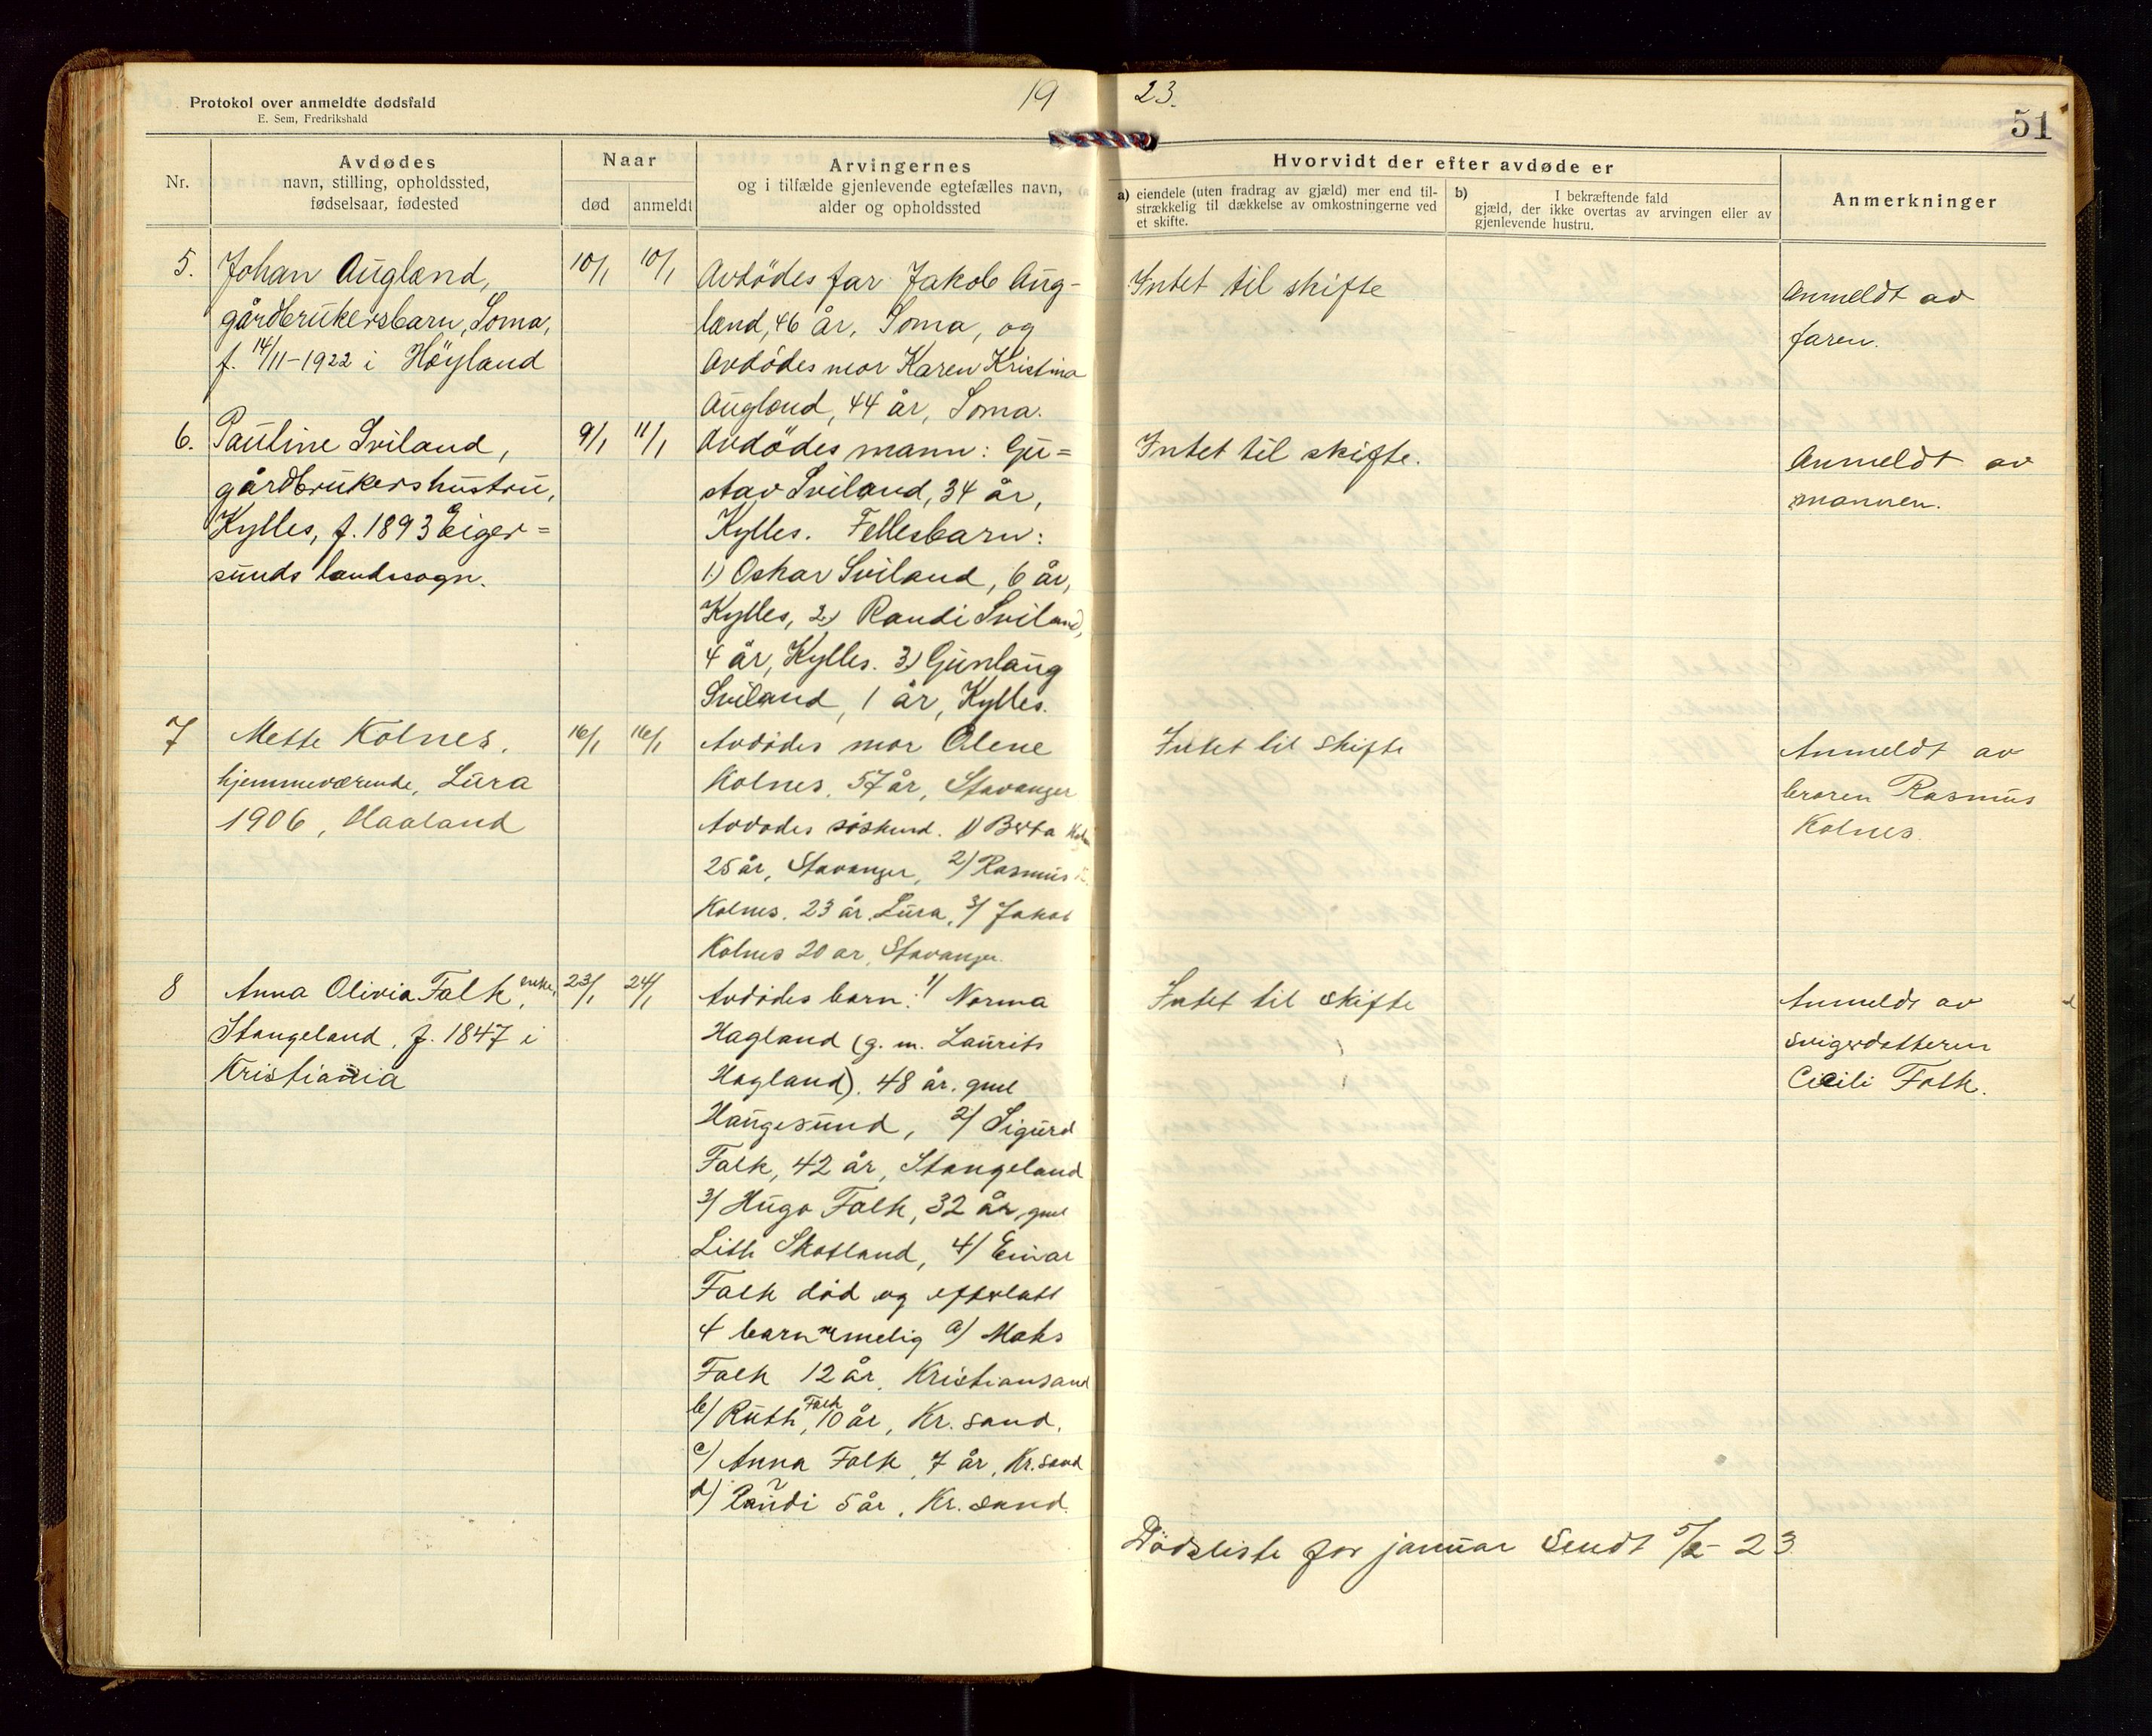 Protokol over anmeldte dødsfald
E. Sem, Fredrikshald
19 23.
51
Nr.
Avdødes
navn, stilling, opholdssted,
fødselsaar, fødested
Naar
død
anmeldt
Arvingernes
og i tilfælde gjenlevende egtefælles navn,
alder og opholdssted
Hvorvidt der efter avdøde er
a) eiendele (uten fradrag av gjæld) mer end til-
strækkelig til dækkelse av omkostningerne ved
et skifte.
b) I bekræftende fald
gjæld, der ikke overtas av arvingen eller av
gjenlevende hustru.
Anmerkninger
5.
Johan Augland,
gårdbrukersbarn, Soma,
f. 14/11-1922 i Höyland
10/1
10/1
Avdödes far Jakob Aug-
land, 46 år, Soma, og
Avdödes mor Karen Kristina
Augland, 44 år, Soma.
Intet til skifte
Anmeldt av
faren.
6.
Pauline Sviland,
gårdbrukershustru,
Kylles, f. 1893 Eiger=
sunds landssogn.
9/1
11/1
Avdödes mann: Gu=
stav Sviland, 34 år,
Kylles. Fellesbarn:
1.) Oskar Sviland, 6 år,
Kylles, 2.) Randi Sviland,
4 år, Kylles. 3.) Gunlaug
Sviland, 1 år, Kylles.
Intet til skifte.
Anmeldt av
mannen.
7
Mette Kolnes,
hjemmeværende, Lura
1906, Haaland
16/1
16/1
Avdödes mor Olene
Kolnes, 57 år, Stavanger
Avdødes søskend. 1) Berta
25 år, Stavanger, 2) Rasmus
Kolnes, 23 år, Lura, 3) Jakob
Kolnes 20 ar, Stavanger.
Intet til skifte
Anmeldt av
broren Rasmus
Kolnes.
8
Anna Olivia Falk, enke,
Stangeland, f. 1847 i
Kristiania
23/1
24/1
Avdødes barn: 1) Norma
Hagland (g. m. Laurits
Hagland). 48 år.
Haugesund, 2) Sigurd
Falk, 42 år, Stangeland
3) Hugo Falk, 32 år,
Lith Skotland, 4) Einar
Falk død og efterlatt
4 barn nemelig a) Maks
Falk 12 år, Kristiansand
b) Ruth Falk, 10 år, Kr. sand.
c) Anna Falk, 7 år, Kr. sand
d) Randi 5 år, Kr. sand.
Intet til skifte
Anmeldt av
svigerdatteren
Cicili Falk.
Dödsliste for januar Sendt 5/2-23